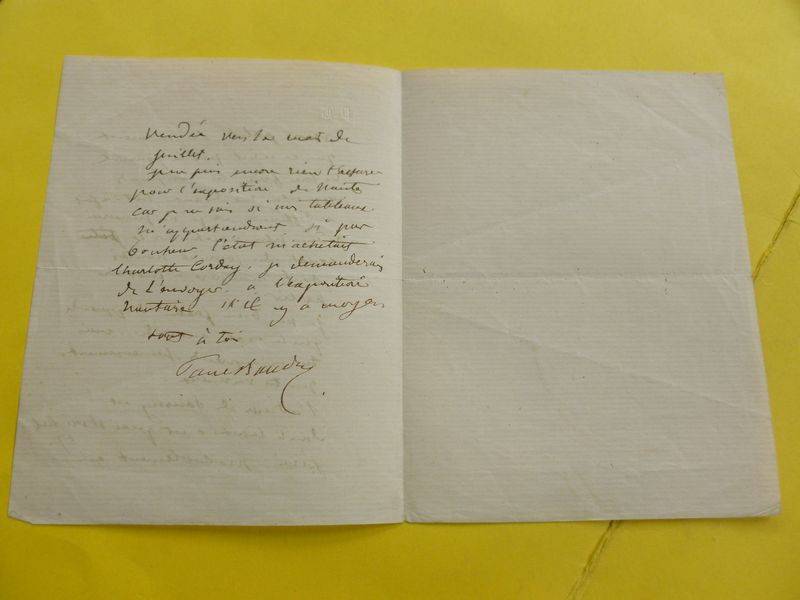 Vendée vers le mois de
juillet.
je ne puis encore rien
pour l'exposition de Nantes
car je ne sais si mes tableaux
m'appartiendront. si par
bonheur l'état m'achetait
Charlotte Corday, je demanderais
de l'envoyer a l'exposition
Nantaise s'il y a moyen
tout à toi
Paul Baudry